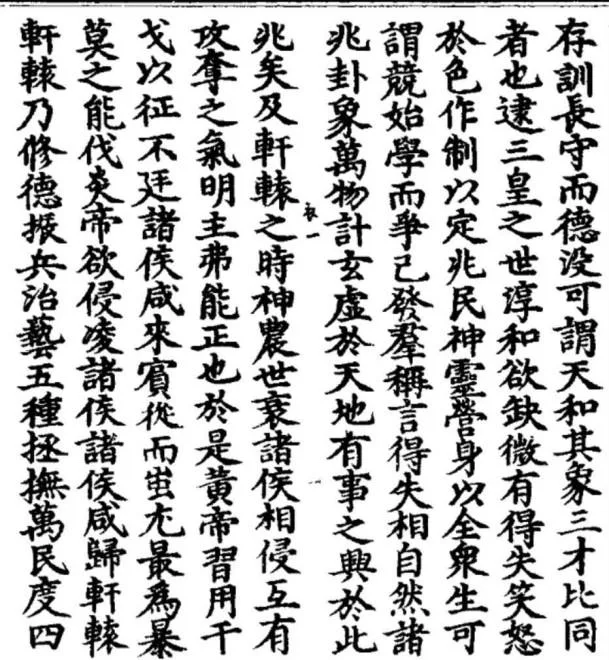 存訓長守而德没可謂天和其象三才比同
者也逮三皇之世淳和欲缺微有得失笑怒
於色作制以定兆民神靈營身以全衆生可
謂競始學而爭己發羣稱言得失相自然諸
兆卦象萬物計玄虛於天地有事之興於此
兆矣及軒轅之時神農世衰諸侯相侵互有
攻奪之氣明主弗能正也於是黃帝習用干
戈以征不廷諸侯咸來賓從而蚩尤最為暴
莫之能伐炎帝欲侵凌諸侯諸侯咸歸軒轅
軒轅乃修德振兵治藝五種拯撫萬民度四